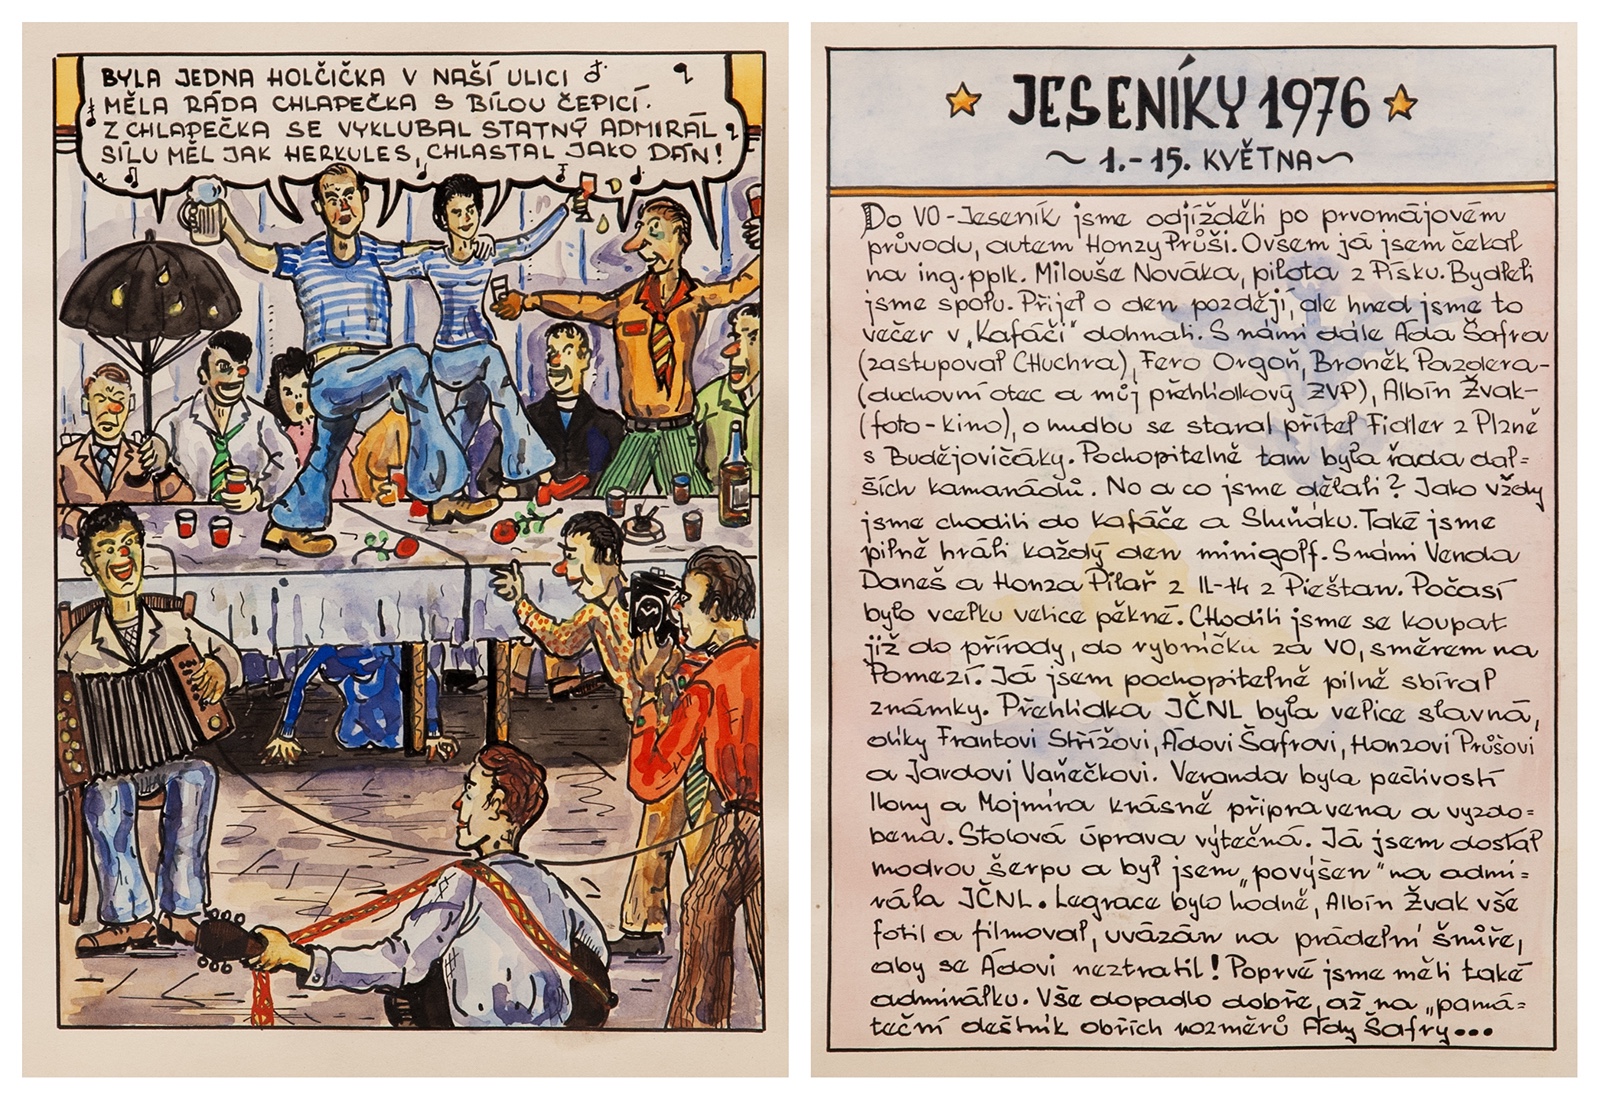 BYLA JEDNA HOLČIČKA V NAŠÍ ULICI
MĚLA RÁDA CHLAPEČKA S BÍLOU ČEPICÍ.
Z CHLAPEČKA SE VYKLUBAL STATNÝ ADMIRÁL
SÍLU MĚL JAK HERKULES, CHLASTAL JAKO DÁN!
JESENÍKY 1976
1.-15. KVĚTNA
Do VO-Jeseník jsme odjížděli po prvomájovém
průvodu, autem Honzy Průši. Ovšem já jsem čekal
na ing. pplk. Milouše Nováka, pilota z Písku. Bydleli
jsme spolu. Přijel o den později, ale hned jsme to
večer v „Kafáči" dohnali. S námi dále Áda Šafra
(zastupoval CHuchra), Fero Orgoň, Broněk Pazdera-
(duchovní otec a můj přehlídkový ZVP), Albín Žvak-
(foto-kino), o hudbu se staral přítel Fidler z Plzně
s Budějovičáky. Pochopitelně tam byla řada dal=
ších kamarádů. No a co jsme dělali? Jako vždy
jsme chodili do Kafáče a Sluňáku. Také jsme
pilně hráli každý den minigolf. S námi Venda
Daneš a Honza Pilař z II-14 z Piešťan. Počasí
bylo vcelku velice pěkné. CHodili jsme se koupat
již do přírody, do rybníčku za VO, směrem na
Pomezí. Já jsem pochopitelně pilně sbíral
známky. Přehlídka JČNL byla velice slavná,
díky Frantovi Střížovi, Ádovi Šafrovi, Honzovi Průšovi
a Jardovi Vaňečkovi. Veranda byla pečlivostí
Ilony a Mojmíra krásně připravena a vyzdo=
bena. Stolová úprava výtečná. Já jsem dostal
modrou šerpu a byl jsem „povýšen" na admi=
rála JČNL. Legrace bylo hodně, Albín Žvak vše
fotil a filmoval, uvázán na prádelní šnůře,
aby se Ádovi neztratil! Poprvé jsme měli také
admirálku. Vše dopadlo dobře, až na „pamá=
teční deštník obřích rozměrů Ády Šafry...